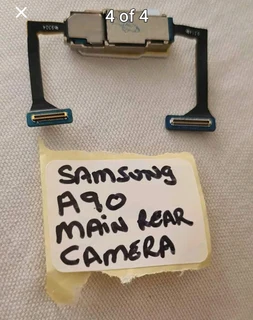 4 of 4
SAMSUNG
A90
MAIN REAR
CAMERA